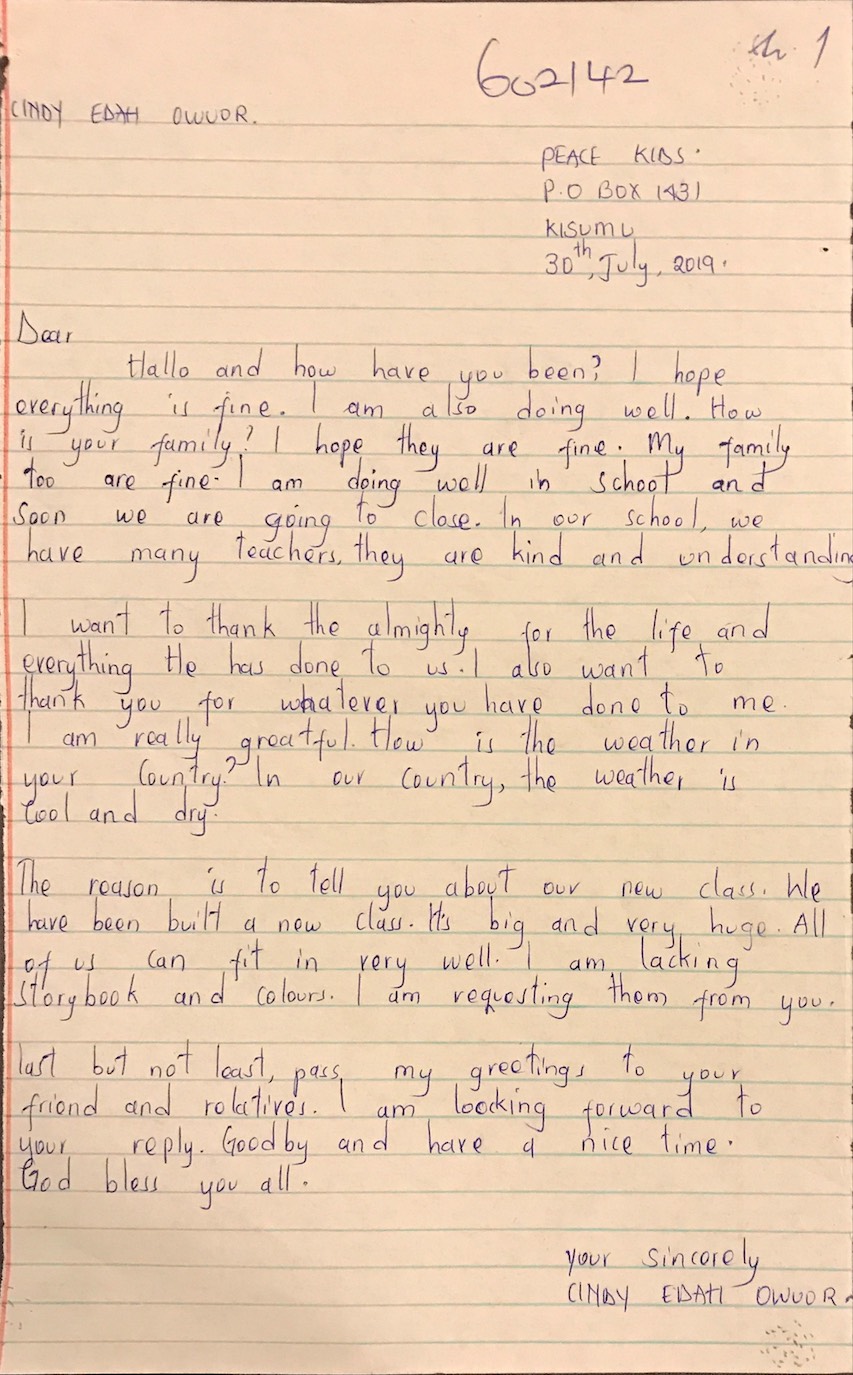 602142
CINDY EDAH OWUOR.
PEACE KIDS.
P.O BOX 1431
KISUMU
30th, July, 2019.
Dear
Hallo and how have you been? I hope
everything is fine. I am also doing well. How
is your family? I hope they are fine. My family
too are fine. I am doing well in school and
Soon we are going to close. In our school, we
have many teachers, they are kind and understanding
I want to thank the almighty for the life and
everything He has done to us. I also want to
thank you for whatever you have done to me.
I am really greatful. How is the weather in
your Country? In our Country, the weather is
Cool and dry.
The reason is to tell you about our new class. We
have been built a new class. It's big and very huge. All
of us can fit in very well. I am lacking
Storybook and colours. I am requesting them from you.
last but not least, pass my greetings to your
friend and relatives. I am loocking forward to
your reply. Goodby and have a nice time.
God bless you all.
your Sincerely
CINDY EDAH OWUOR.